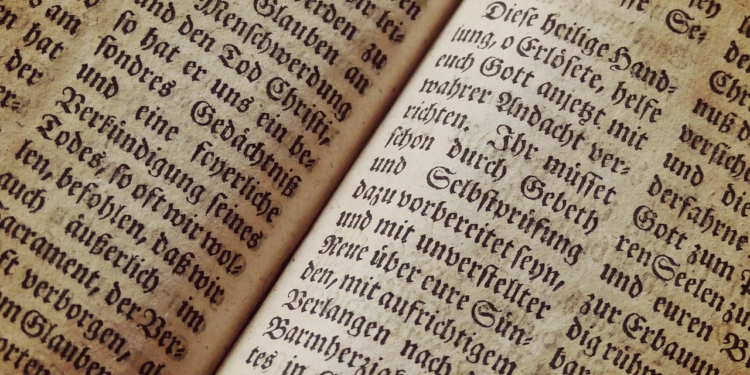 am
n hat
der
er-
Glauben an
Menſchwerdung
und den Tod Chriſti,
ſo hat er uns ein be-
ſondres Gedächtniß
und eine feyerliche
Verkündigung ſeines
Todes, ſo oft wir wol-
len, befohlen, daß wir
auch äußerlich im
Sacrament, der Ver-
ft verborgen,
m Glauben
orten
Dieſe heilige Hand-
lung, o Erlöſete, helfe
euch Gott anjetzt mit
wahrer Andacht ver-
richten. Ihr müſſet
ſchon durch Gebeth
und Selbſtprüfung
dazu vorbereitet ſeyn,
und mit unverſtellter
Reue über eure Sün-
den, mit aufrichtigem
Verlangen nach
Barmherzig
tes in
Se-
Chri
nuß d
verſich
und die
derfahrne
Gott zum
ren Seelen zu
und euren B
zur Erbauun
dig rühm
bar